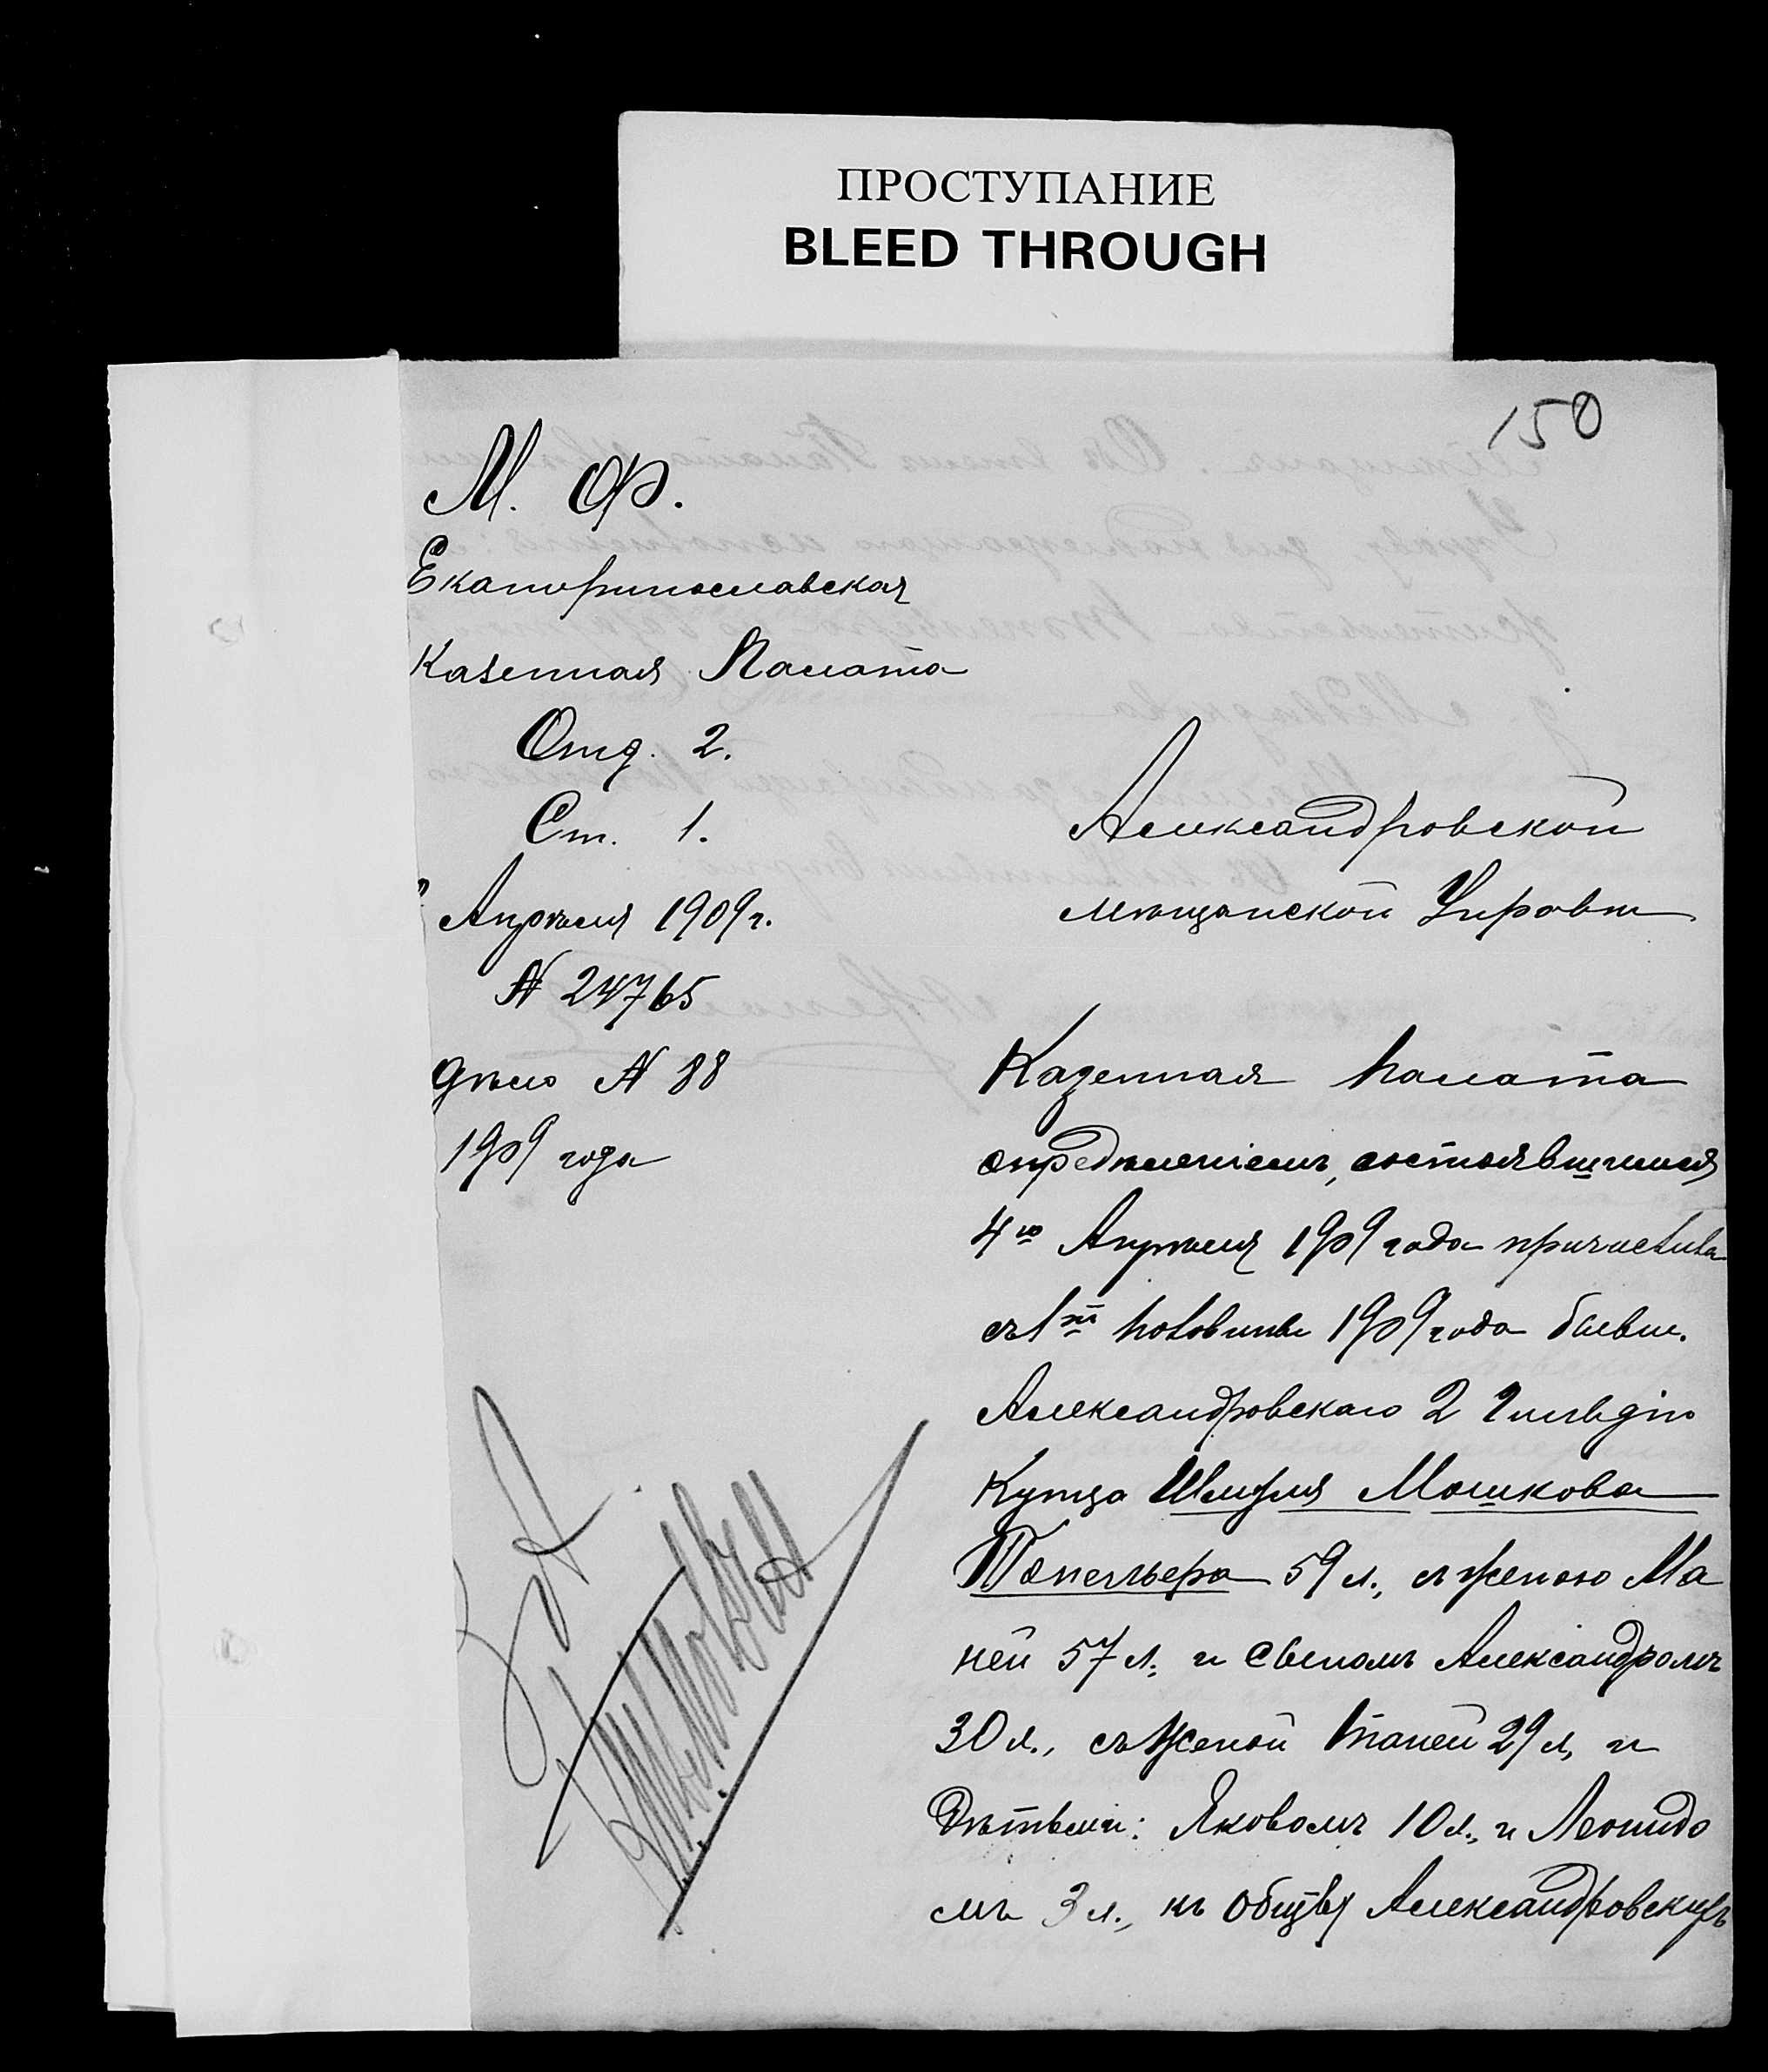 ПРОСТУПАНИЕ
BLEED THROUGH
150
М. Ф.
Екатеринославская
Казенная Палата
Отд. 2.
Ст. 1.
" Апрѣля 1909 г.
№ 24765
дѣло № 88
1909 года
Александровской
мѣщанской Управѣ
Казенная Палата
опредѣленіемъ, состоявшимся
4го Апрѣля 1909 года причислила
съ 1й половины 1909 года бывш.
Александровскаго 2 гильдіи
Купца Шмуля Мошкова
Топельберга 59 л., съ женою Ма
ней 57 л. и сыномъ Александромъ
30 л., съ женой Таней 29 л. и
дѣтьми: Яковомъ 10 л., и Леонидо
мъ 3 л., къ общву Александровскихъ